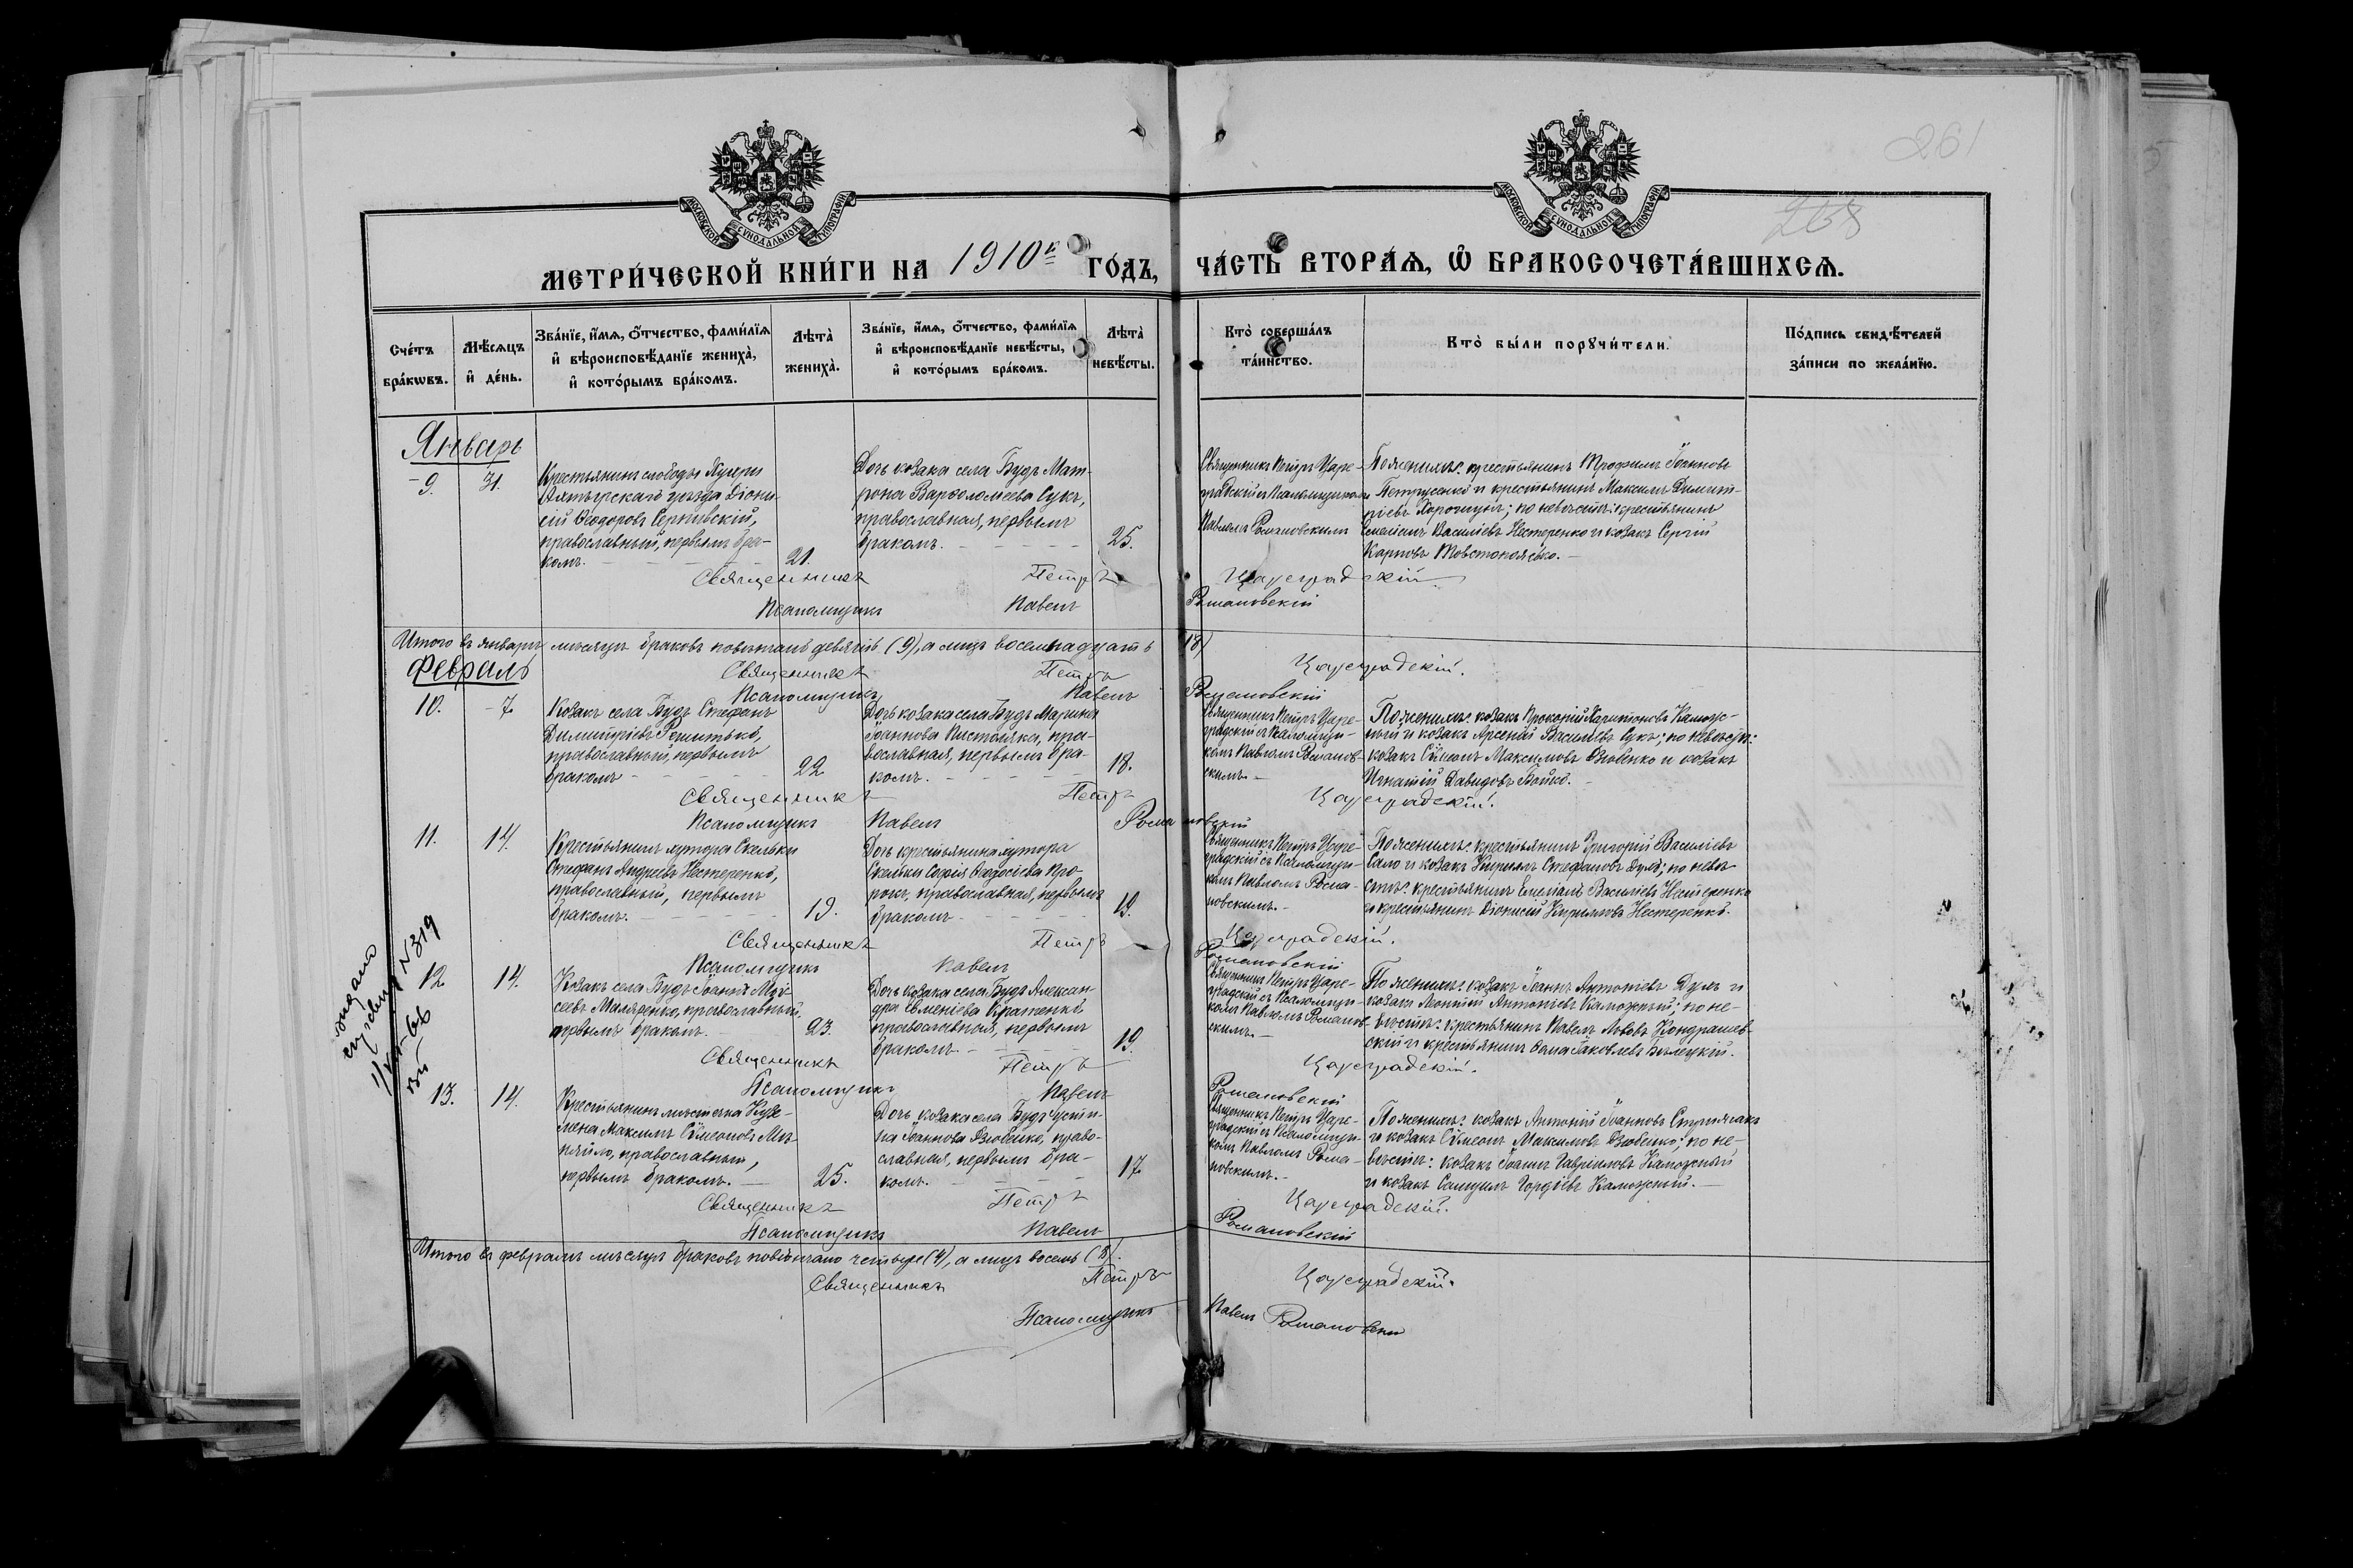 261
268
МОСКОВСКОЙ СѴНОДАЛЬНОЙ ТИПОГРАФІИ
МОСКОВСКОЙ СѴНОДАЛЬНОЙ ТИПОГРАФІИ
МЕТРИ́ЧЕСКОЙ КНИ́ГИ НА 1910й ГО́ДЪ, ЧА́СТЬ ВТОРА́Ѧ, Ѽ БРАКОСОЧЕТА́ВШИХСѦ.
Сче́тъ
бра́кѡвъ.
Мѣ́сѧцъ
и҆ де́нь.
Зва́нїе, и҆́мѧ, ѻ҆́тчество, фами́лїѧ
и҆ вѣроисповѣ́данїе жениха̀,
и҆ кото́рымъ бра́комъ.
Лѣта̀
жениха̀.
Зва́нїе, и҆́мѧ, ѻ҆́тчество, фами́лїѧ
и҆ вѣроисповѣ́данїе невѣ́сты,
и҆ кото́рымъ бра́комъ.
Лѣта̀
невѣ́сты.
Кто̀ соверша́лъ
та́инство.
Кто̀ бы́ли порꙋчи́тели.
По́дпись свидѣ́телей
за́писи по жела́нїю.
Январь
9.
31.
Крестьянинъ слободы
уѣзда Діони-
сій Ѳеодоровъ
православный, первымъ бра-
комъ.
21.
Дочь козака села Будъ Мат-
рона Варѳоломеева Сукъ,
православная, первымъ
бракомъ.
25.
Священникъ Петръ Царе-
градскій съ Псаломщикомъ
Павломъ Романовскимъ
По женихѣ: крестьянинъ Трофимъ Іоанновъ
Петрусенко и крестьянинъ Максимъ Димит-
ріевъ; по невѣстѣ: крестьянинъ
Емеліанъ Василіевъ Нестеренко и козакъ Сергій
Карповъ Товстопятько.
Священникъ Петръ Цареградскій
Псаломщикъ Павелъ Романовскій
Итого въ январѣ мѣсяцѣ браковъ повѣнчанъ девять (9), а лицъ восемнадцать (18)
Февраль
Священникъ Петръ Цареградскій.
Псаломщикъ Павелъ Романовскій
10.
7.
Козакъ села Будъ Стефанъ
Димитріевъ Решитько,
православный, первымъ
бракомъ
22
Дочь козака села Будъ Марина
Іоаннова, пра-
вославная, первымъ бра-
комъ.
18.
Священникъ Петръ Царе-
градскій съ Псаломщи-
комъ Павломъ Романов-
скимъ.
По женихѣ: козакъ Прокопій Харитоновъ Каморж-
ный и козакъ Арсеній Василіевъ Сукъ; по невѣстѣ:
козакъ Сѵмеонъ Максимовъ Дзюбенко и козакъ
Игнатій Давидовъ Бойко.
Священникъ Петръ Цареградскій.
Псаломщикъ Павелъ Романовскій
11.
14.
Крестьянинъ хутора Скельки
Стефанъ Андреевъ Нестеренко,
православный, первымъ
бракомъ.
19.
Дочь крестьянина хутора
Скельки Софія Ѳеодосіева Про-
рокъ, православная, первымъ
бракомъ
19.
Священникъ Петръ Царе-
градскій съ Псаломщи-
комъ Павломъ Рома-
новскимъ.
По женихѣ: крестьянинъ Григорій Василіевъ
Сало и козакъ Кириллъ Стефановъ Дулъ; по невѣ-
стѣ: крестьянинъ Емеліанъ Василіевъ Нестеренко
и крестьянинъ Діонисій Кирилловъ Нестеренко.
Священникъ Петръ Цареградскій.
Псаломщикъ Павелъ Романовскій
N319
12.
14.
Козакъ села Будъ Іоаннъ Мои-
сеевъ Маляренко, православный,
первымъ бракомъ.
23.
Дочь козака села Будъ Алексан-
дра Евменіева
православная, первымъ
бракомъ.
19.
Священникъ Петръ Царе-
градскій съ Псаломщи-
комъ Павломъ Романов-
скимъ.
По женихѣ: козакъ Іоаннъ Антоніевъ Дулъ и
козакъ Леонтій Антоніевъ Каморжный; по не-
вѣстѣ: крестьянинъ Павелъ Львовъ Кондрашев-
скій и крестьянинъ Ѳома Іаковлевъ Бѣлецкій.
Священникъ Петръ Цареградскій.
Псаломщикъ Павелъ Романовскій
13.
14.
Крестьянинъ мѣстечка Кузе-
мена Максимъ Сѵмеоновъ
православный,
первымъ бракомъ.
25.
Дочь козака села Будъ Усти-
на Іоаннова Дзюбенко, право-
славная, первымъ бра-
комъ.
17
Священникъ Петръ Царе-
градскій съ Псаломщи-
комъ Павломъ Рома-
новскимъ.
По женихѣ: козакъ Антоній Іоанновъ Стрижакъ
и козакъ Сѵмеонъ Максимовъ Дзюбенко; по не-
вѣстѣ: козакъ Іоаннъ Гавріиловъ Каморжный
и козакъ Самуилъ Гордіевъ Каморжный.
Священникъ Петръ Цареградскій.
Псаломщикъ Павелъ Романовскій
Итого въ февралѣ мѣсяцѣ браковъ повѣнчано четыре (4), а лицъ восемь (8).
Священникъ Петръ Цареградскій.
Псаломщикъ Павелъ Романовскій